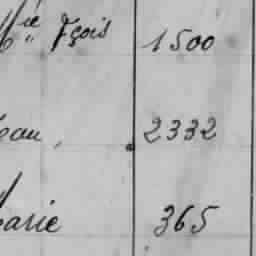 Mie " Fçois 1500
eau, 2332
arie 365